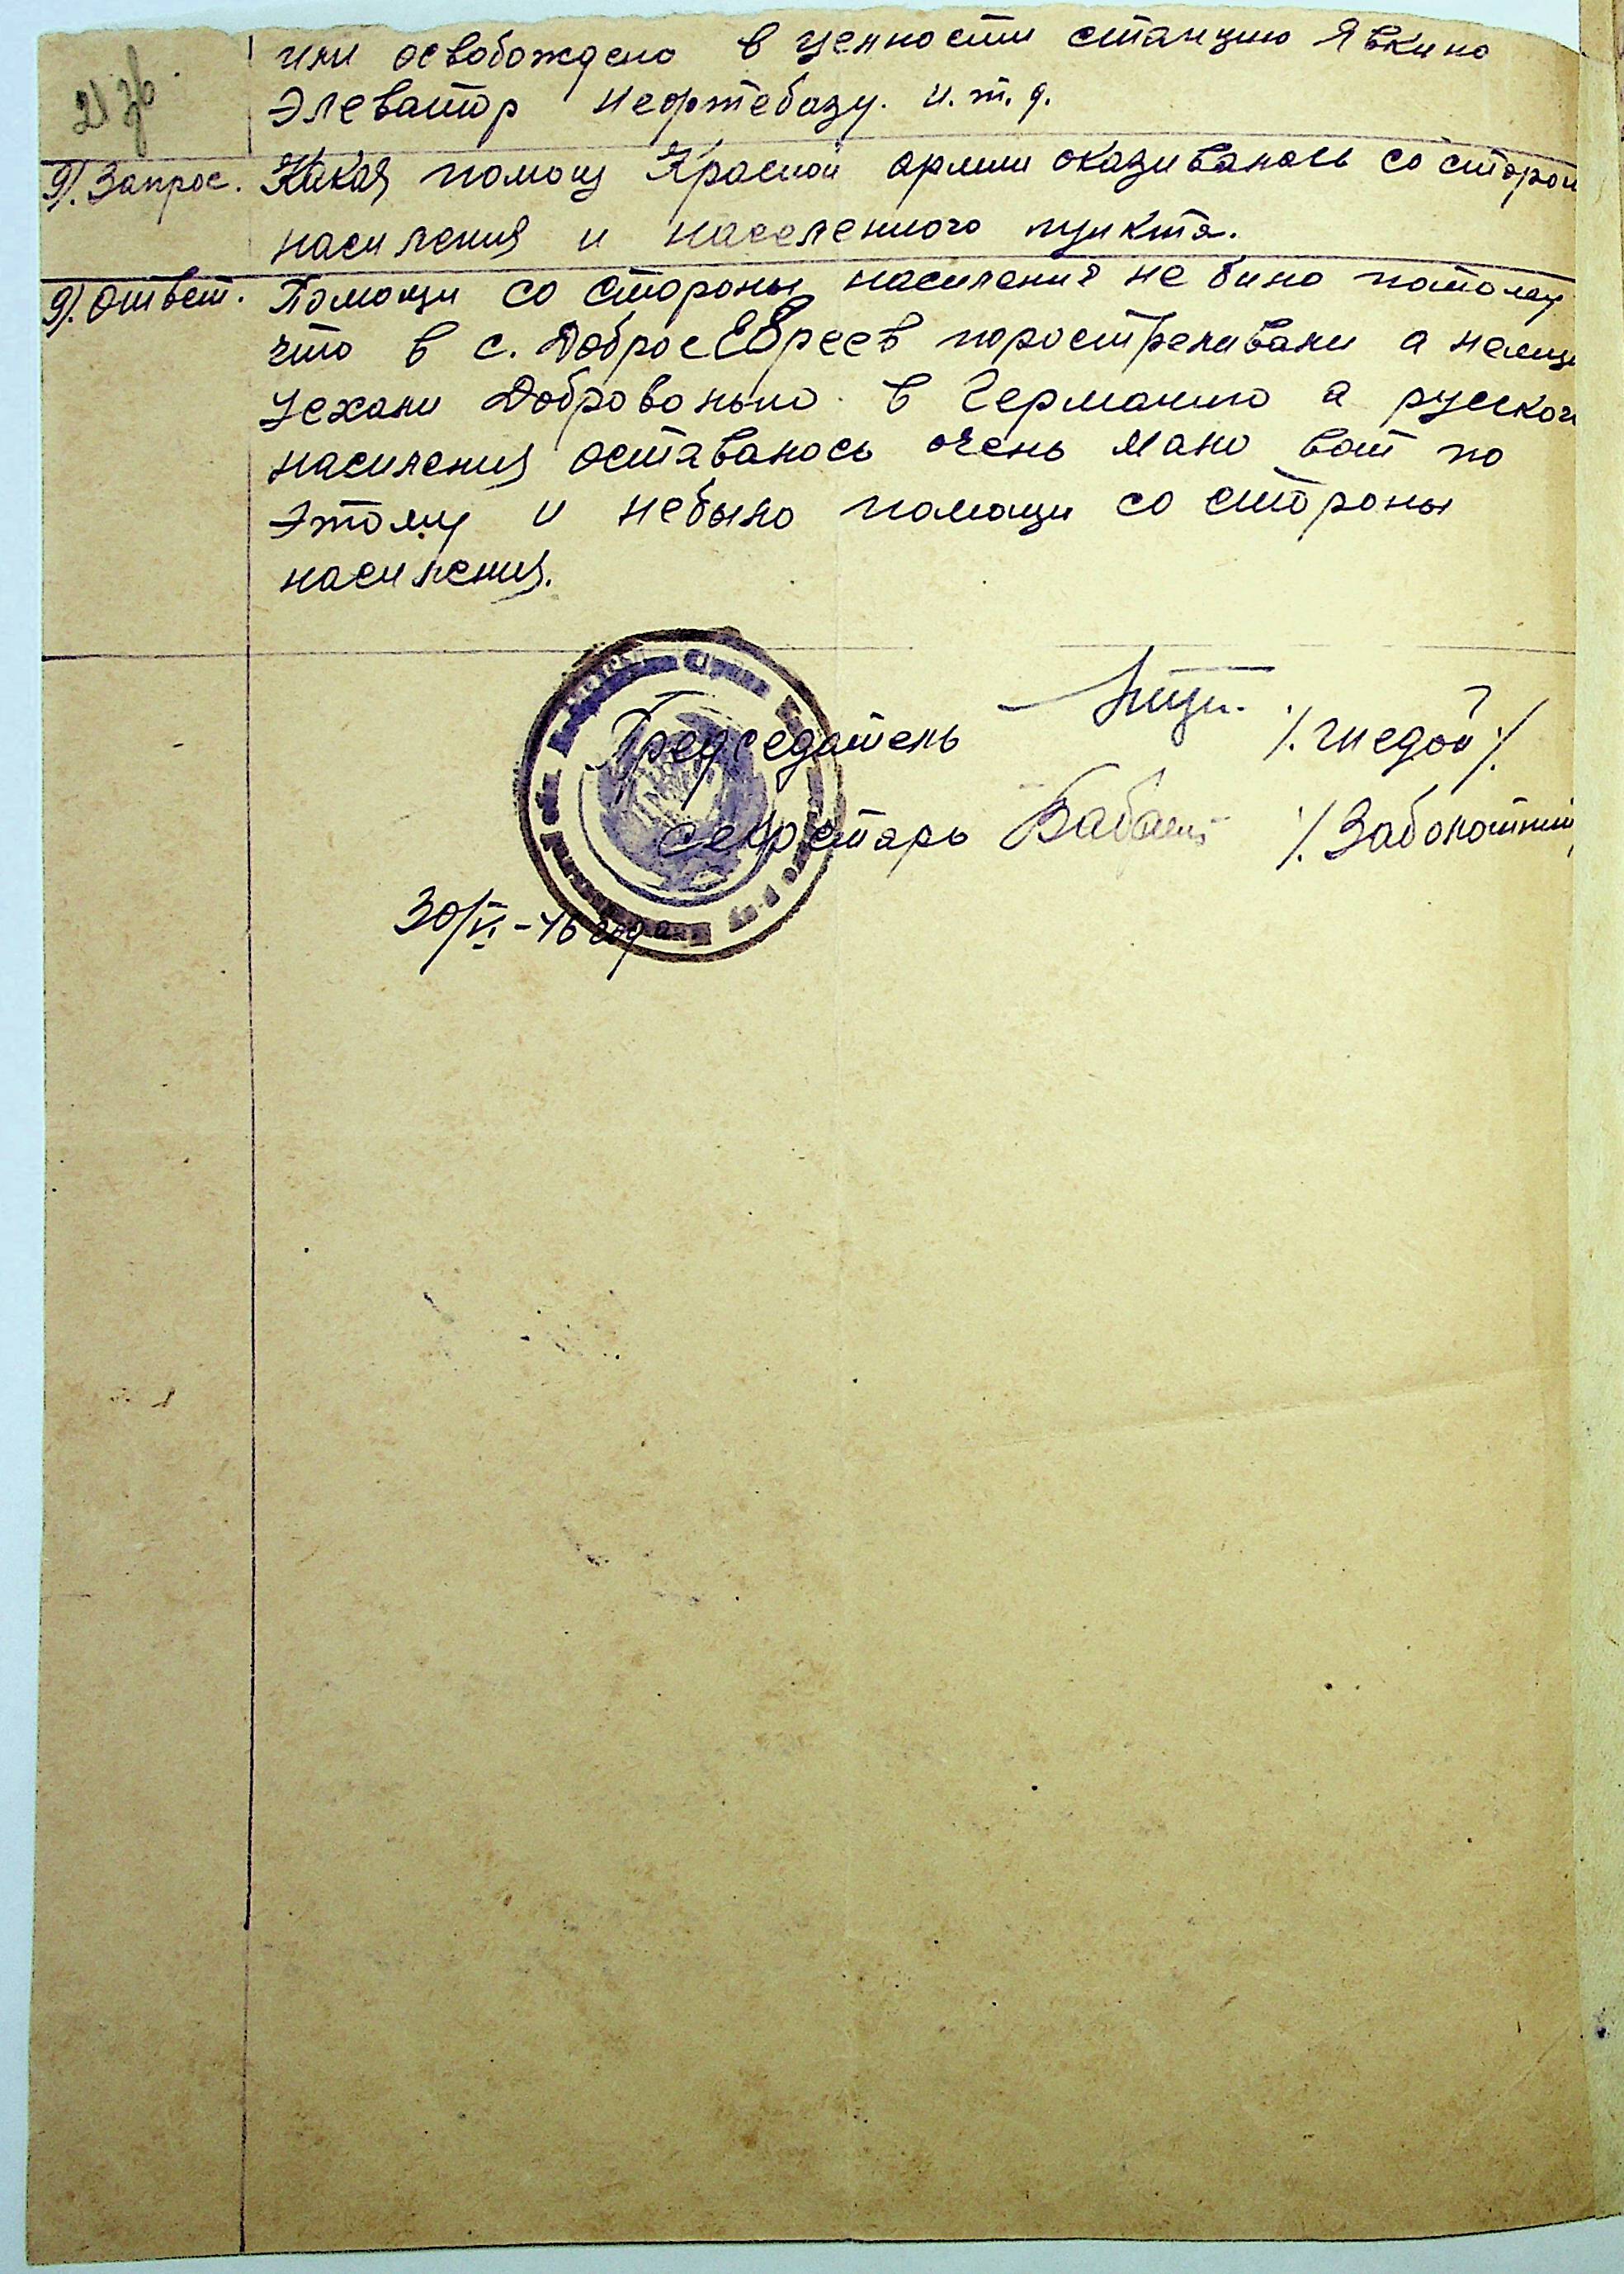 21 зв.
ими освобождено в ценности станцию Явкино
Элеватор Нефтебазу. и. т. д.
9). Запрос. Какая помощ Красной армии оказивалось со сторон
насиления и населенного пункта.
9). Ответ. Помощи со стороны насиления не било потому
что в с. Доброе Евреев поростреливали а немци
уехали Доброволно в Германию а руского
насиления оставалось очень мало вот по
этому и небыло помощи со стороны
насиления.
Председатель /. Гнедой /.
секретарь /. Заболотний
30/VI-46 год